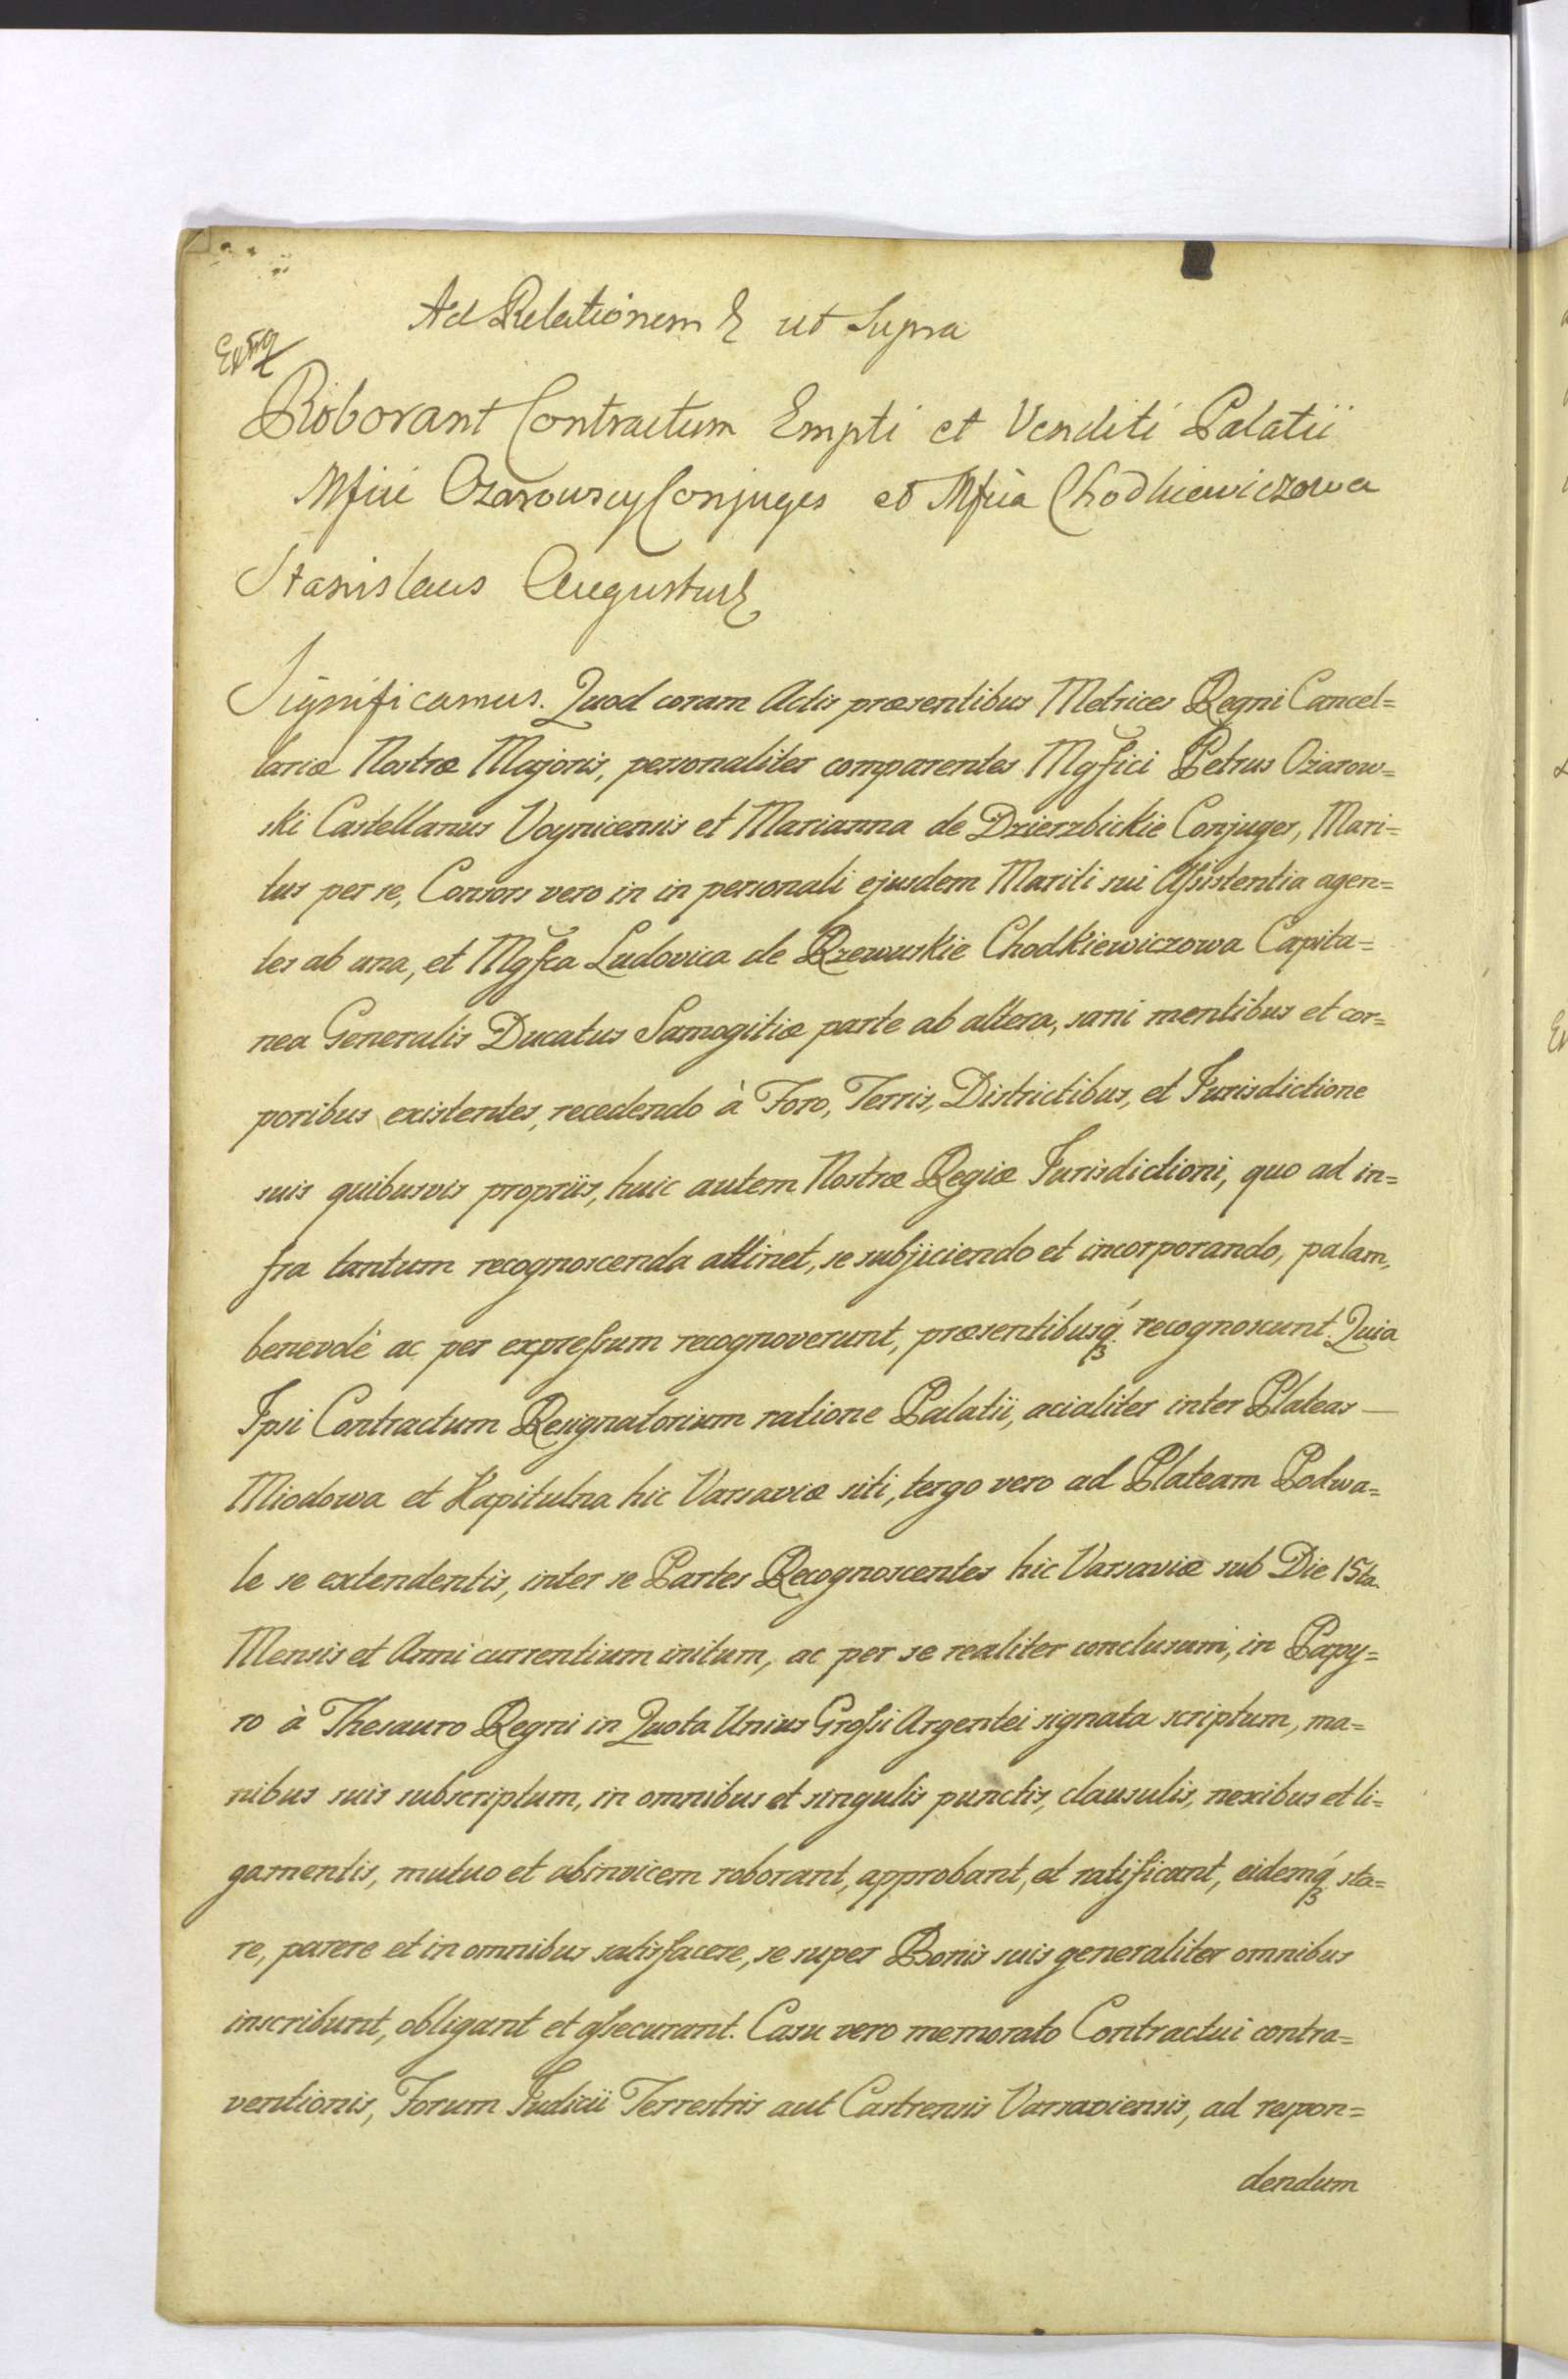 Ad Relationem & ut Supra
Roborant Contractum Empti et Venditi Palatii
Mfici Ozarowscy Conjuges et Mfica Chodkiewiczowa
Stanislaus Augustus &
Significamus. Quod coram Actis præsentibus Metrices Regni Cancel=
lariæ Nostræ Majoris, personaliter comparentes Mgfici Petrus Ożarow=
ski Castellanus Voynicensis et Marianna de Dzierzbickie Conjuges, Mari=
tus per se, Consors vero in in personali ejusdem Mariti sui Assistentia agen=
tes ab una, et Mgfca Ludovica de Rzewuskie Chodkiewiczowa Capita=
nea Generalis Ducatus Samogitiæ parte ab altera, sani mentibus et cor=
poribus existentes, recedendo à Foro, Terris, Districtibus, et Jurisdictione
suis quibusvis propriis, huic autem Nostræ Regiæ Jurisdictioni, quo ad in=
fra tantum recognoscenda attinet, se subjiciendo et incorporando, palam,
benevolè ac per expressum recognoverunt, præsentibusq́ recognoscunt. Quia
Ipsi Contractum Resignatorium ratione Palatii, acialiter inter Plateas —
Miodowa et Kapitulna hic Varsaviæ siti, tergo vero ad Plateam Podwa=
le se extendentis, inter se Partes Recognoscentes hic Varsaviæ sub Die 15ta.
Mensis et Anni currentium initum, ac per se realiter conclusum, in Papy=
ro à Thesauro Regni in Quota Unius Grossi Argentei signata scriptum, ma=
nibus suis subscriptum, in omnibus et singulis punctis, clausulis, nexibus et li=
gamentis, mutuo et abinvicem roborant, approbant, et ratificant, eidemq́ sta=
re, parere et in omnibus satisfacere, se super Bonis suis generaliter omnibus
inscribunt, obligant et assecurant. Casu vero memorato Contractui contra=
ventionis, Forum Judicii Terrestris aut Castrensis Varsaviensis, ad respon=
dendum